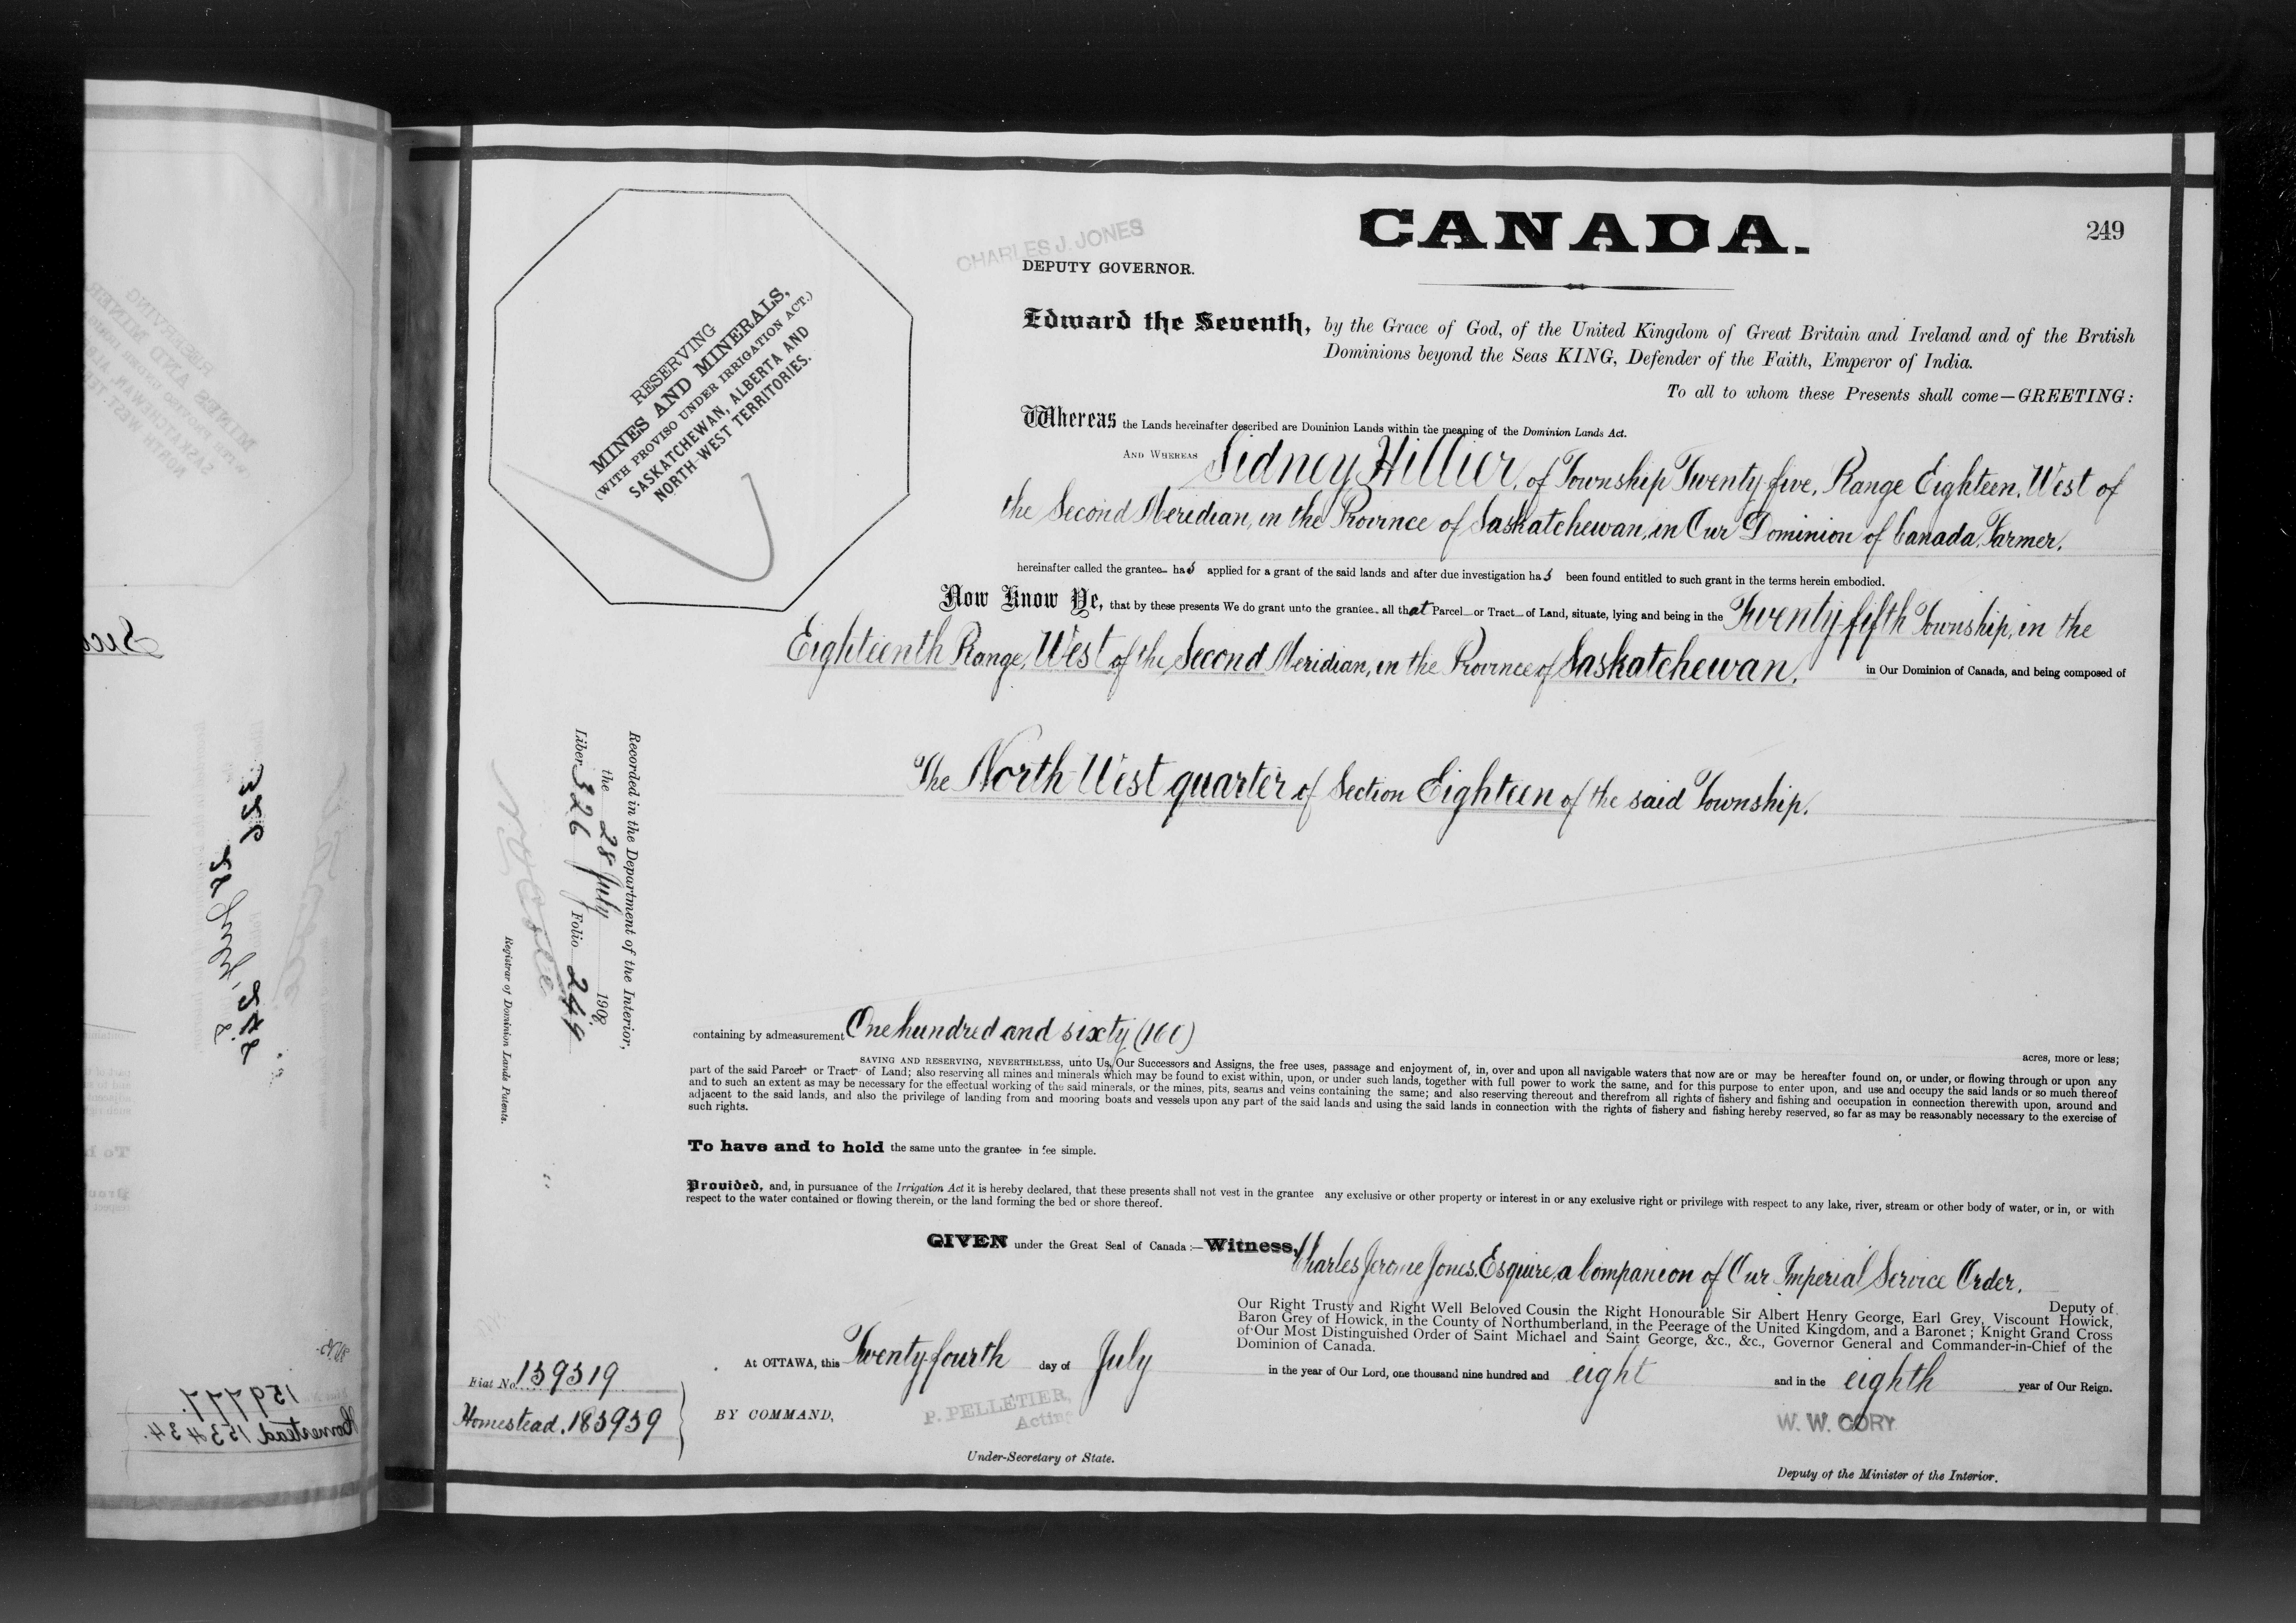 CANADA.
249
CHARLES J. JONES
DEPUTY GOVERNOR.
RESERVING
MINES AND MINERALS,
(WITH PROVISO UNDER IRRIGATION ACT.)
SASKATCHEWAN, ALBERTA AND
NORTH-WEST TERRITORIES.
Edward the Seventh, by the Grace of God, of the United Kingdom of Great Britain and Ireland and of the British
Dominions beyond the Seas KING, Defender of the Faith, Emperor of India.
To all to whom these Presents shall come—GREETING:
Whereas the Lands hereinafter described are Dominion Lands within the meaning of the Dominion Lands Act.
AND WHEREAS Sidney Hillier, of Township Twenty-five, Range Eighteen, West of
the Second Meridian, in the Province of Saskatchewan, in Our Dominion of Canada, Farmer,
hereinafter called the grantee has applied for a grant of the said lands and after due investigation has been found entitled to such grant in the terms herein embodied.
Now Know Ye, that by these presents We do grant unto the grantee all that Parcel or Tract of Land, situate, lying and being in the Twenty-fifth Township, in the
Eighteenth Range, West of the Second Meridian, in the Province of Saskatchewan, in Our Dominion of Canada, and being composed of
The North-West quarter of Section Eighteen of the said Township.
Recorded in the Department of the Interior,
the 28 July 1908
Liber 326 Folio 249
Registrar of Dominion Lands Patents.
containing by admeasurement One hundred and sixty (160) acres, more or less;
SAVING AND RESERVING, NEVERTHELESS, unto Us, Our Successors and Assigns, the free uses, passage and enjoyment of, in, over and upon all navigable waters that now are or may be hereafter found on, or under, or flowing through or upon any
part of the said Parcel or Tract of Land; also reserving all mines and minerals which may be found to exist within, upon, or under such lands, together with full power to work the same, and for this purpose to enter upon, and use and occupy the said lands or so much thereof
and to such an extent as may be necessary for the effectual working of the said minerals, or the mines, pits, seams and veins containing the same; and also reserving thereout and therefrom all rights of fishery and fishing and occupation in connection therewith upon, around and
adjacent to the said lands, and also the privilege of landing from and mooring boats and vessels upon any part of the said lands and using the said lands in connection with the rights of fishery and fishing hereby reserved, so far as may be reasonably necessary to the exercise of
such rights.
To have and to hold the same unto the grantee in fee simple.
Provided, and, in pursuance of the Irrigation Act it is hereby declared, that these presents shall not vest in the grantee any exclusive or other property or interest in or any exclusive right or privilege with respect to any lake, river, stream or other body of water, or in, or with
respect to the water contained or flowing therein, or the land forming the bed or shore thereof.
GIVEN under the Great Seal of Canada :—Witness, Charles Jerome Jones, Esquire, a Companion of Our Imperial Service Order,
Deputy of
Our Right Trusty and Right Well Beloved Cousin the Right Honourable Sir Albert Henry George, Earl Grey, Viscount Howick,
Baron Grey of Howick, in the County of Northumberland, in the Peerage of the United Kingdom, and a Baronet; Knight Grand Cross
of Our Most Distinguished Order of Saint Michael and Saint George, &c., &c., Governor General and Commander-in-Chief of the
Dominion of Canada.
At OTTAWA, this Twenty fourth day of July in the year of Our Lord, one thousand nine hundred and eight and in the eighth year of Our Reign.
Fiat No. 159319
Homestead. 183939
BY COMMAND,
P. PELLETIER,
Acting
Under-Secretary of State.
W. W. CORY
Deputy of the Minister of the Interior.